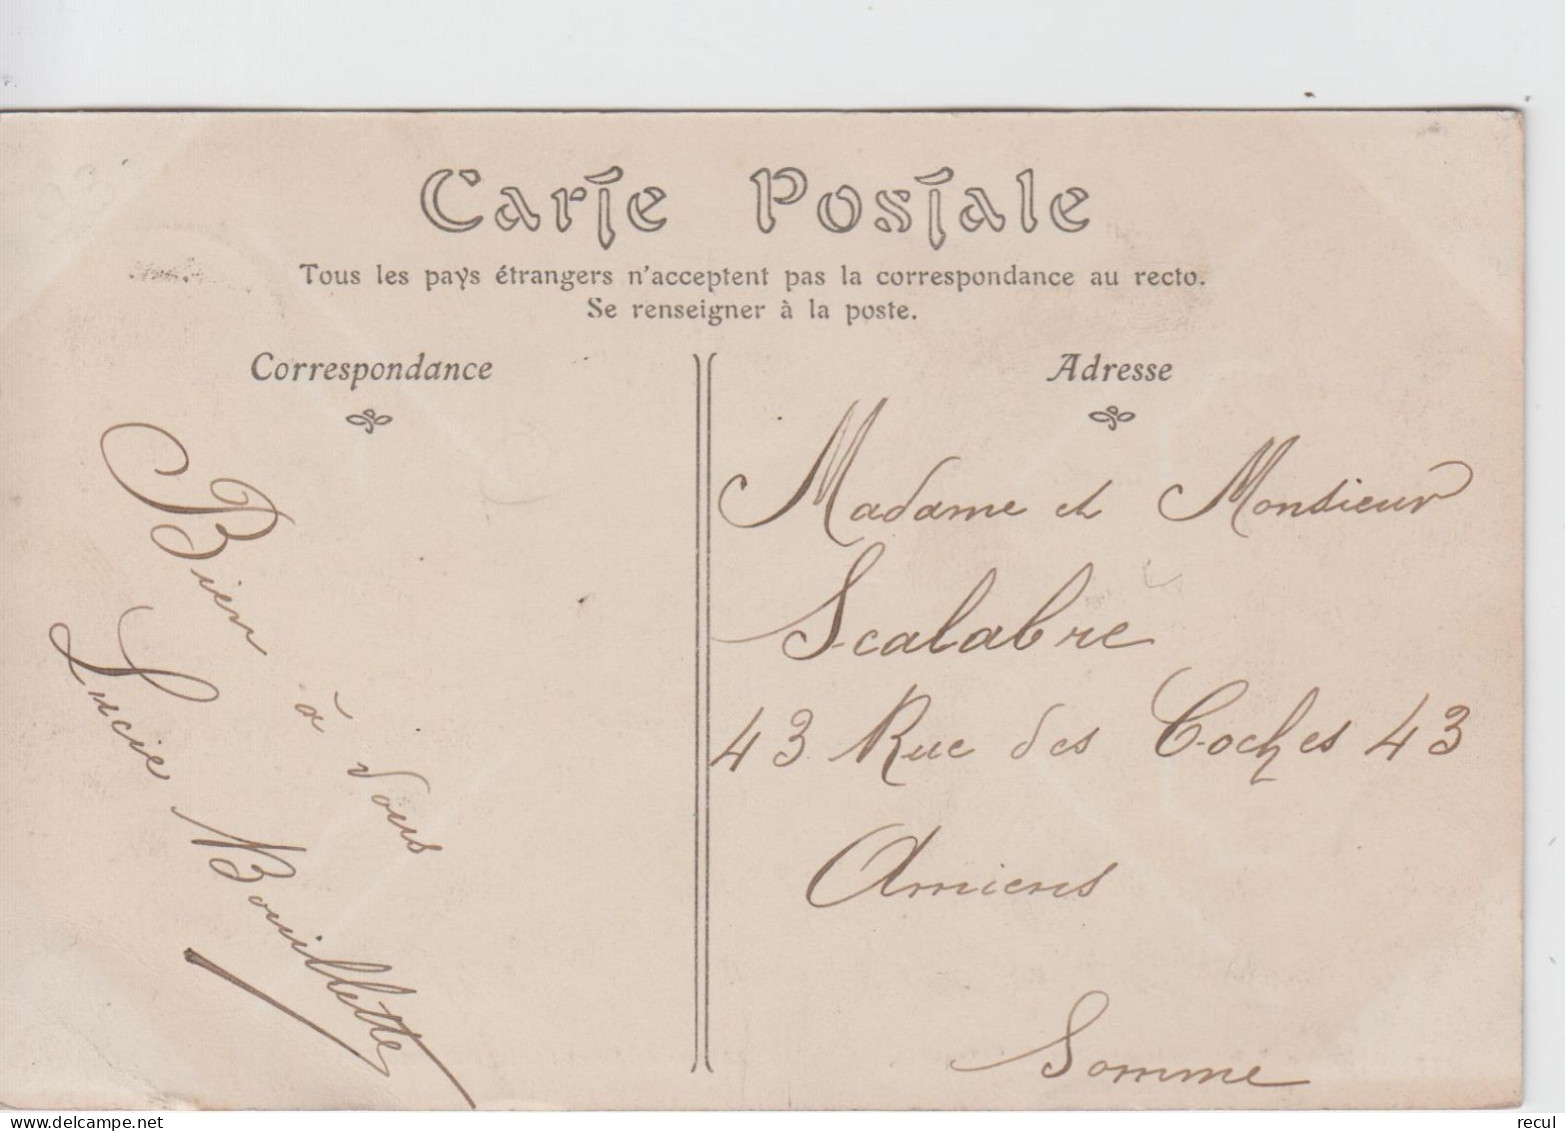 Carte Postale
Tous les pays étrangers n'acceptent pas la correspondance au recto.
Se renseigner à la poste.
Correspondance
Bien à vous
Lucie Bouillette
Adresse
Madame et Monsieur
Scalabre
43 Rue des Coches 43
Amiens
Somme
www.delcampe.net
recul